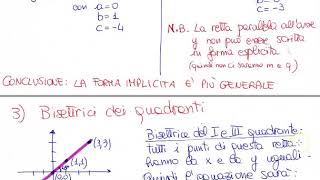 con a=0
b=1
c=-4
c=-3
N.B. La retta parallela all'asse
y non può essere scritta
in forma esplicita
(quindi non ci saranno m e q)
CONCLUSIONE: LA FORMA IMPLICITA E' PIÙ GENERALE
3) Bisettrici dei quadranti
Bisettrice del I e III quadrante:
tutti i punti di questa retta
hanno la x e la y uguali.
Quindi l'equazione sarà:
(3,3)
(1,1)
(0,0)